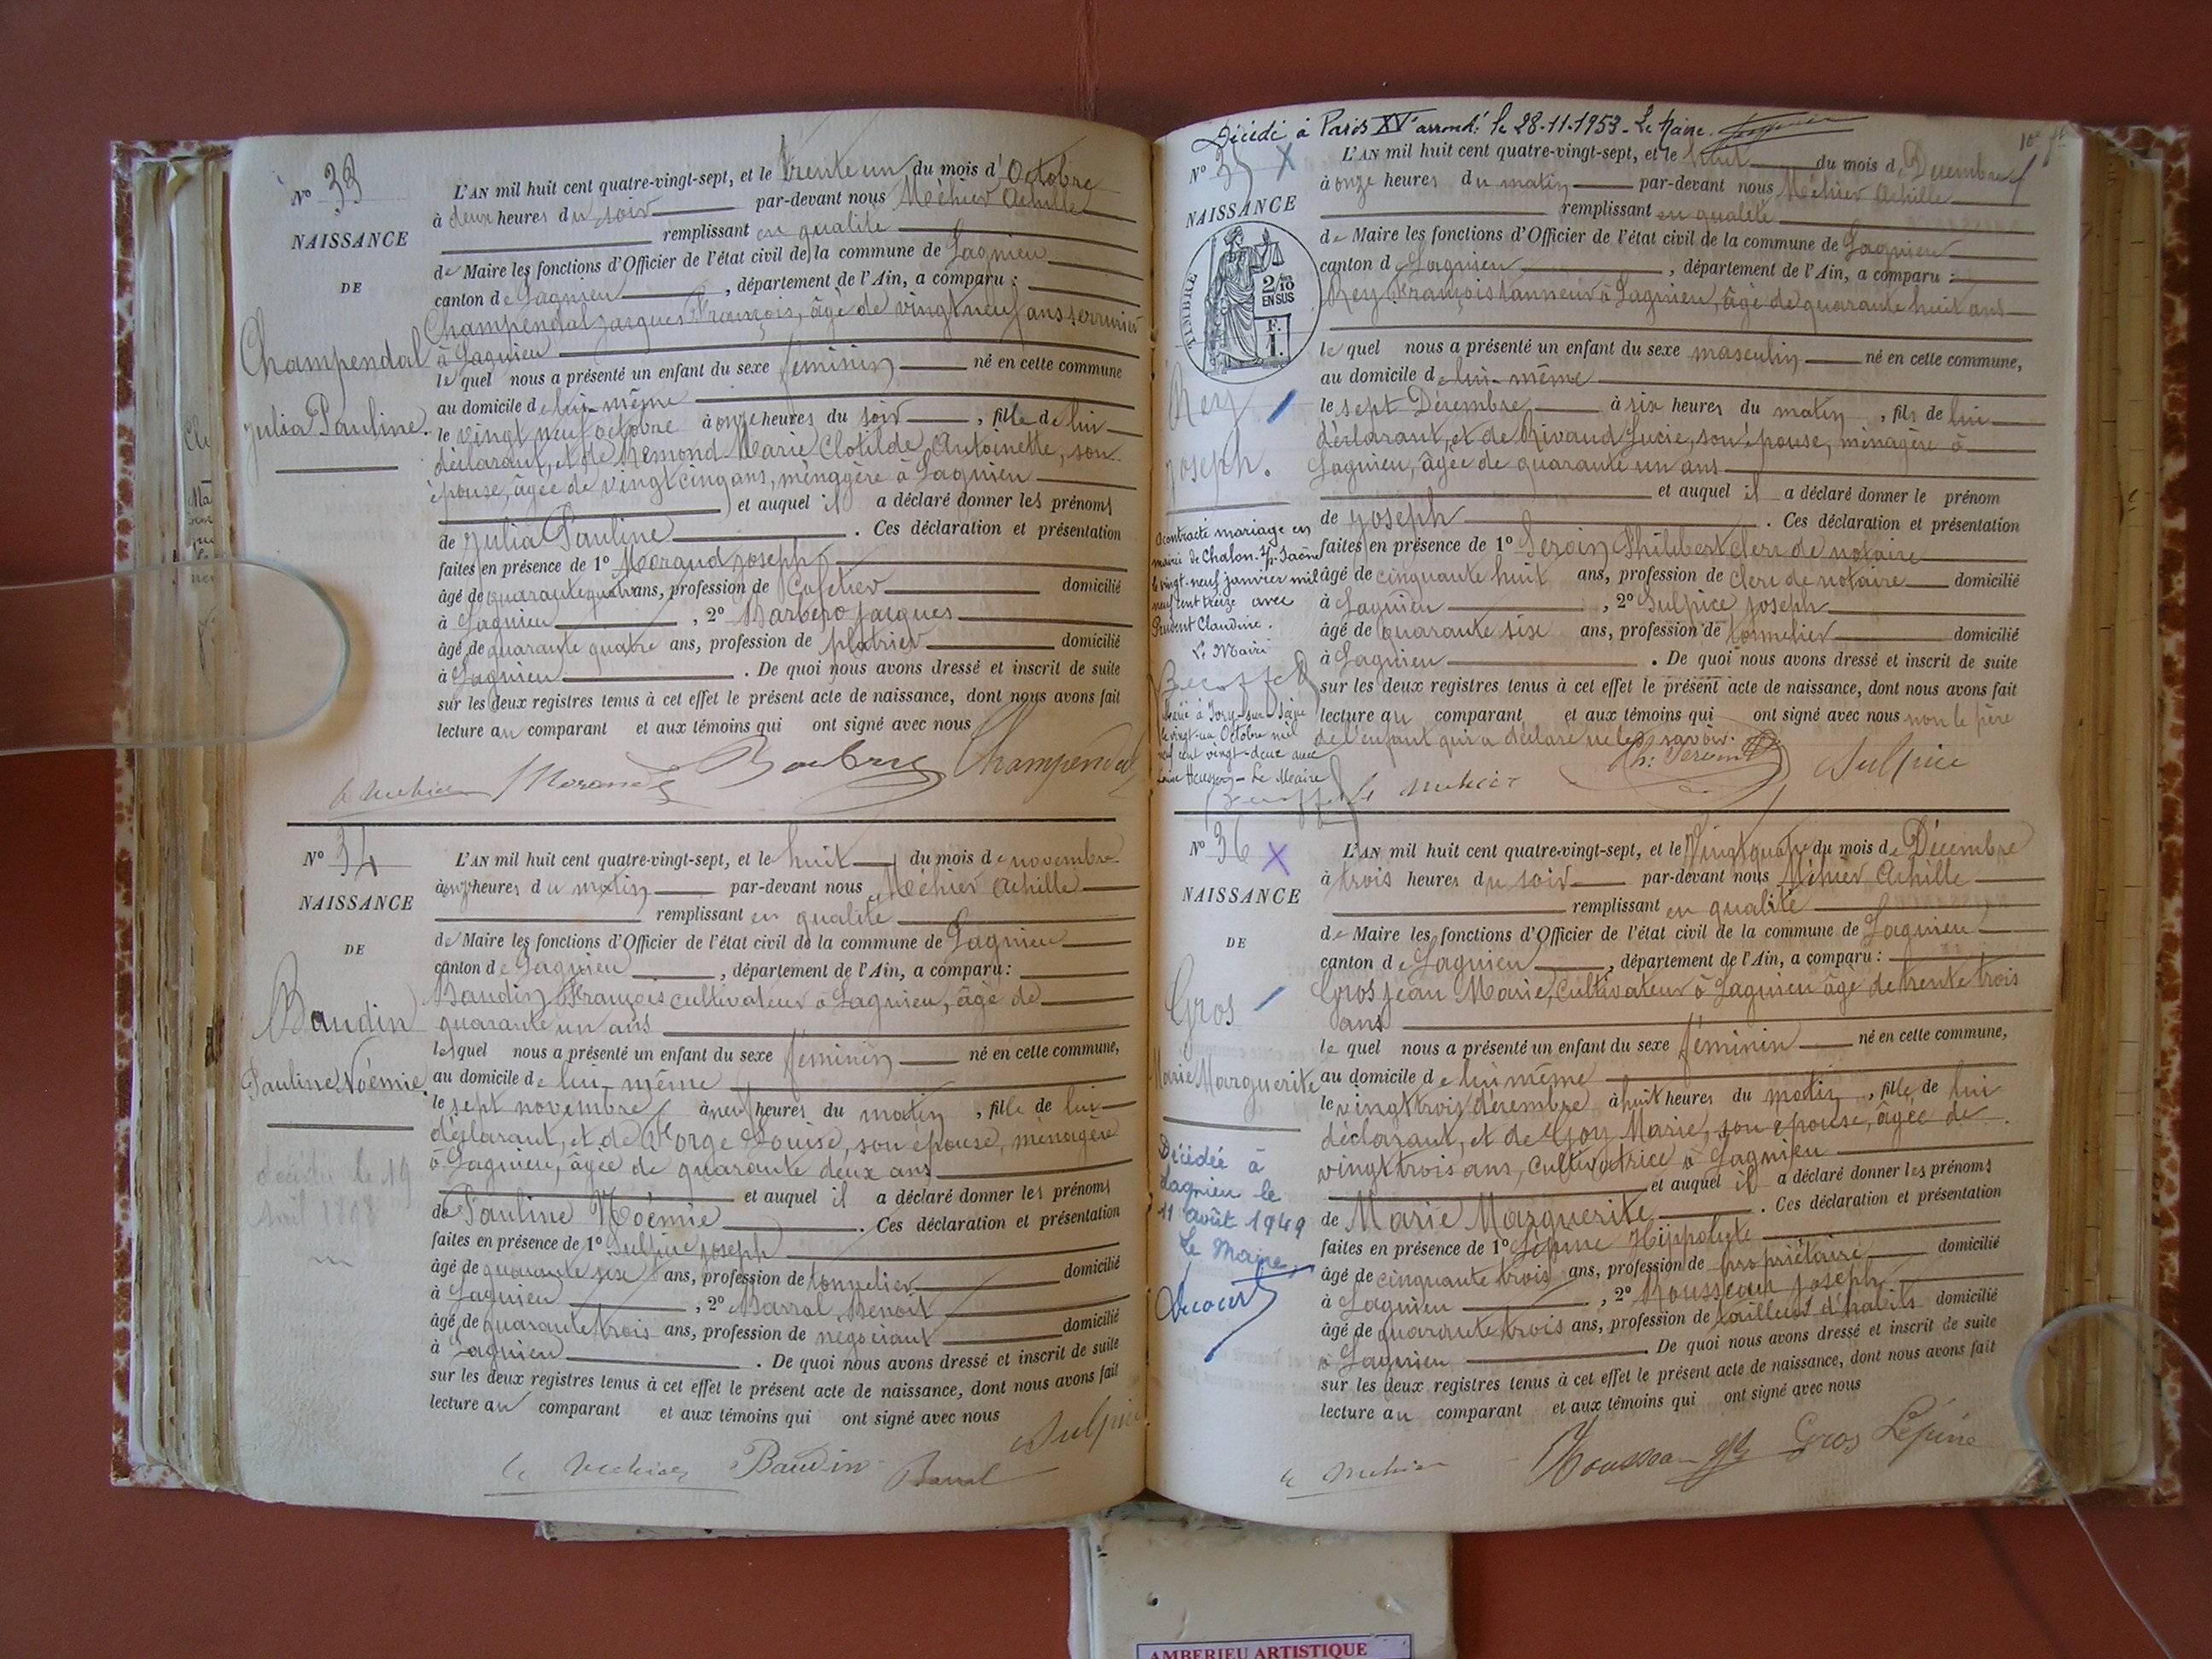 No 33
NAISSANCE
DE
Champendal
Julia Pauline.
L'AN mil huit cent quatre-vingt-sept, et le trente un du mois d'Octobre
à deux heures du soir par-devant nous Méhier Achille
remplissant en qualité
de Maire les fonctions d'Officier de l'état civil de la commune de Lagnieu
canton de Lagnieu, département de l'Ain, a comparu :
Champendal Jacques François, âgé de vingt neuf ans serrurier
à Lagnieu
lequel nous a présenté un enfant du sexe féminin né en cette commune
au domicile de lui-même
le vingt neuf octobre à onze heures du soir, fille de lui
déclarant, et de Remond Marie Clotilde Antoinette, son
épouse, âgée de vingt cinq ans, ménagère à Lagnieu
et auquel il a déclaré donner les prénoms
de Julia Pauline. Ces déclaration et présentation
faites en présence de 1º Moraud Joseph
âgé de quarante quatre ans, profession de Cafetier domicilié
à Lagnieu, 2º Barbero Jacques
âgé de quarante quatre ans, profession de platrier domicilié
à Lagnieu. De quoi nous avons dressé et inscrit de suite
sur les deux registres tenus à cet effet le présent acte de naissance, dont nous avons fait
lecture au comparant et aux témoins qui ont signé avec nous
Champendal
No 34
NAISSANCE
DE
Baudin
Pauline Noémie
décédée le 19
L'AN mil huit cent quatre-vingt-sept, et le huit du mois de novembre
à onze heures du matin par-devant nous Méhier Achille
remplissant en qualité
de Maire les fonctions d'Officier de l'état civil de la commune de Lagnieu
canton de Lagnieu, département de l'Ain, a comparu :
Baudin François cultivateur à Lagnieu, âgé de
quarante un ans
lequel nous a présenté un enfant du sexe féminin né en cette commune,
au domicile de lui-même
le sept novembre à neuf heures du matin, fille de lui
déclarant, et de Vorge Louise, son épouse, ménagère
à Lagnieu, âgée de quarante deux ans
et auquel il a déclaré donner les prénoms
de Pauline Noémie. Ces déclaration et présentation
faites en présence de 1º Sulpice Joseph
âgé de quarante six ans, profession de tonnelier domicilié
à Lagnieu, 2º Barral Benoit
âgé de quarante trois ans, profession de négociant domicilié
à Lagnieu. De quoi nous avons dressé et inscrit de suite
sur les deux registres tenus à cet effet le présent acte de naissance, dont nous avons fait
lecture au comparant et aux témoins qui ont signé avec nous
Sulpice
Baudin Barral
Décédé à Paris XVe arrondt. le 28-11-1953 - Le Maire.
No 35 X
NAISSANCE
TIMBRE
2/10
EN SUS
F.
1.
Rey
Joseph.
A contracté mariage en
mairie de Chalon-s/-Saône
le vingt-neuf janvier mil
neuf cent treize avec
Prudent Claudine.
Le Maire
Marié à Ivry-sur-Seine
le vingt-un Octobre mil
neuf cent vingt-deux avec
Le Maire
L'AN mil huit cent quatre-vingt-sept, et le huit du mois de Décembre
à onze heures du matin par-devant nous Méhier Achille
remplissant en qualité
de Maire les fonctions d'Officier de l'état civil de la commune de Lagnieu
canton de Lagnieu, département de l'Ain, a comparu :
Rey François tanneur à Lagnieu, âgé de quarante huit ans
lequel nous a présenté un enfant du sexe masculin né en cette commune,
au domicile de lui-même
le sept Décembre à six heures du matin, fils de lui
déclarant, et de Rivaud Lucie, son épouse, ménagère à
Lagnieu, âgée de quarante un ans
et auquel il a déclaré donner le prénom
de Joseph. Ces déclaration et présentation
faites en présence de 1º Seroin Philibert clerc de notaire
âgé de cinquante huit ans, profession de clerc de notaire domicilié
à Lagnieu, 2º Sulpice Joseph
âgé de quarante six ans, profession de tonnelier domicilié
à Lagnieu. De quoi nous avons dressé et inscrit de suite
sur les deux registres tenus à cet effet le présent acte de naissance, dont nous avons fait
lecture au comparant et aux témoins qui ont signé avec nous non le père
de l'enfant qui a déclaré ne le savoir.
Sulpice
No 36 X
NAISSANCE
DE
Gros
Marie Marguerite
Décédée à
Lagnieu le
11 août 1949
Le Maire,
L'AN mil huit cent quatre-vingt-sept, et le Vingt quatre du mois de Décembre
à trois heures du soir par-devant nous Méhier Achille
remplissant en qualité
de Maire les fonctions d'Officier de l'état civil de la commune de Lagnieu
canton de Lagnieu, département de l'Ain, a comparu :
Gros Jean Marie, Cultivateur à Lagnieu âgé de trente trois
ans
lequel nous a présenté un enfant du sexe féminin né en cette commune,
au domicile de lui même
le vingt trois décembre à huit heures du matin, fille de lui
déclarant, et de Goy Marie, son épouse, âgée de
vingt trois ans, cultivatrice à Lagnieu
et auquel il a déclaré donner les prénoms
de Marie Marguerite. Ces déclaration et présentation
faites en présence de 1º Lépine Hippolyte
âgé de cinquante trois ans, profession de propriétaire domicilié
à Lagnieu, 2º Rousseau Joseph
âgé de quarante trois ans, profession de tailleur d'habits domicilié
à Lagnieu. De quoi nous avons dressé et inscrit de suite
sur les deux registres tenus à cet effet le présent acte de naissance, dont nous avons fait
lecture au comparant et aux témoins qui ont signé avec nous
Gros Lépine
AMBERIEU ARTISTIQUE